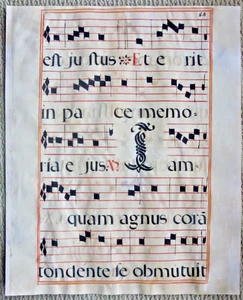 est justus Et erit
in pa ce memo
ria ejus. Iam
quam agnus corā
tondente se obmutuit